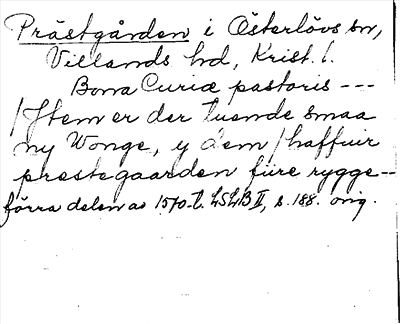 Prästgården i Österlövs sn,
Villands hd, Krist. l.
Bona Curiæ pastoris ---
/Item er der tuende smaa
ny Wonge, y dem / haffuir
prestegaarden fiire rygge--
förra delen av 1570-t. LSLB II, s. 188. orig.